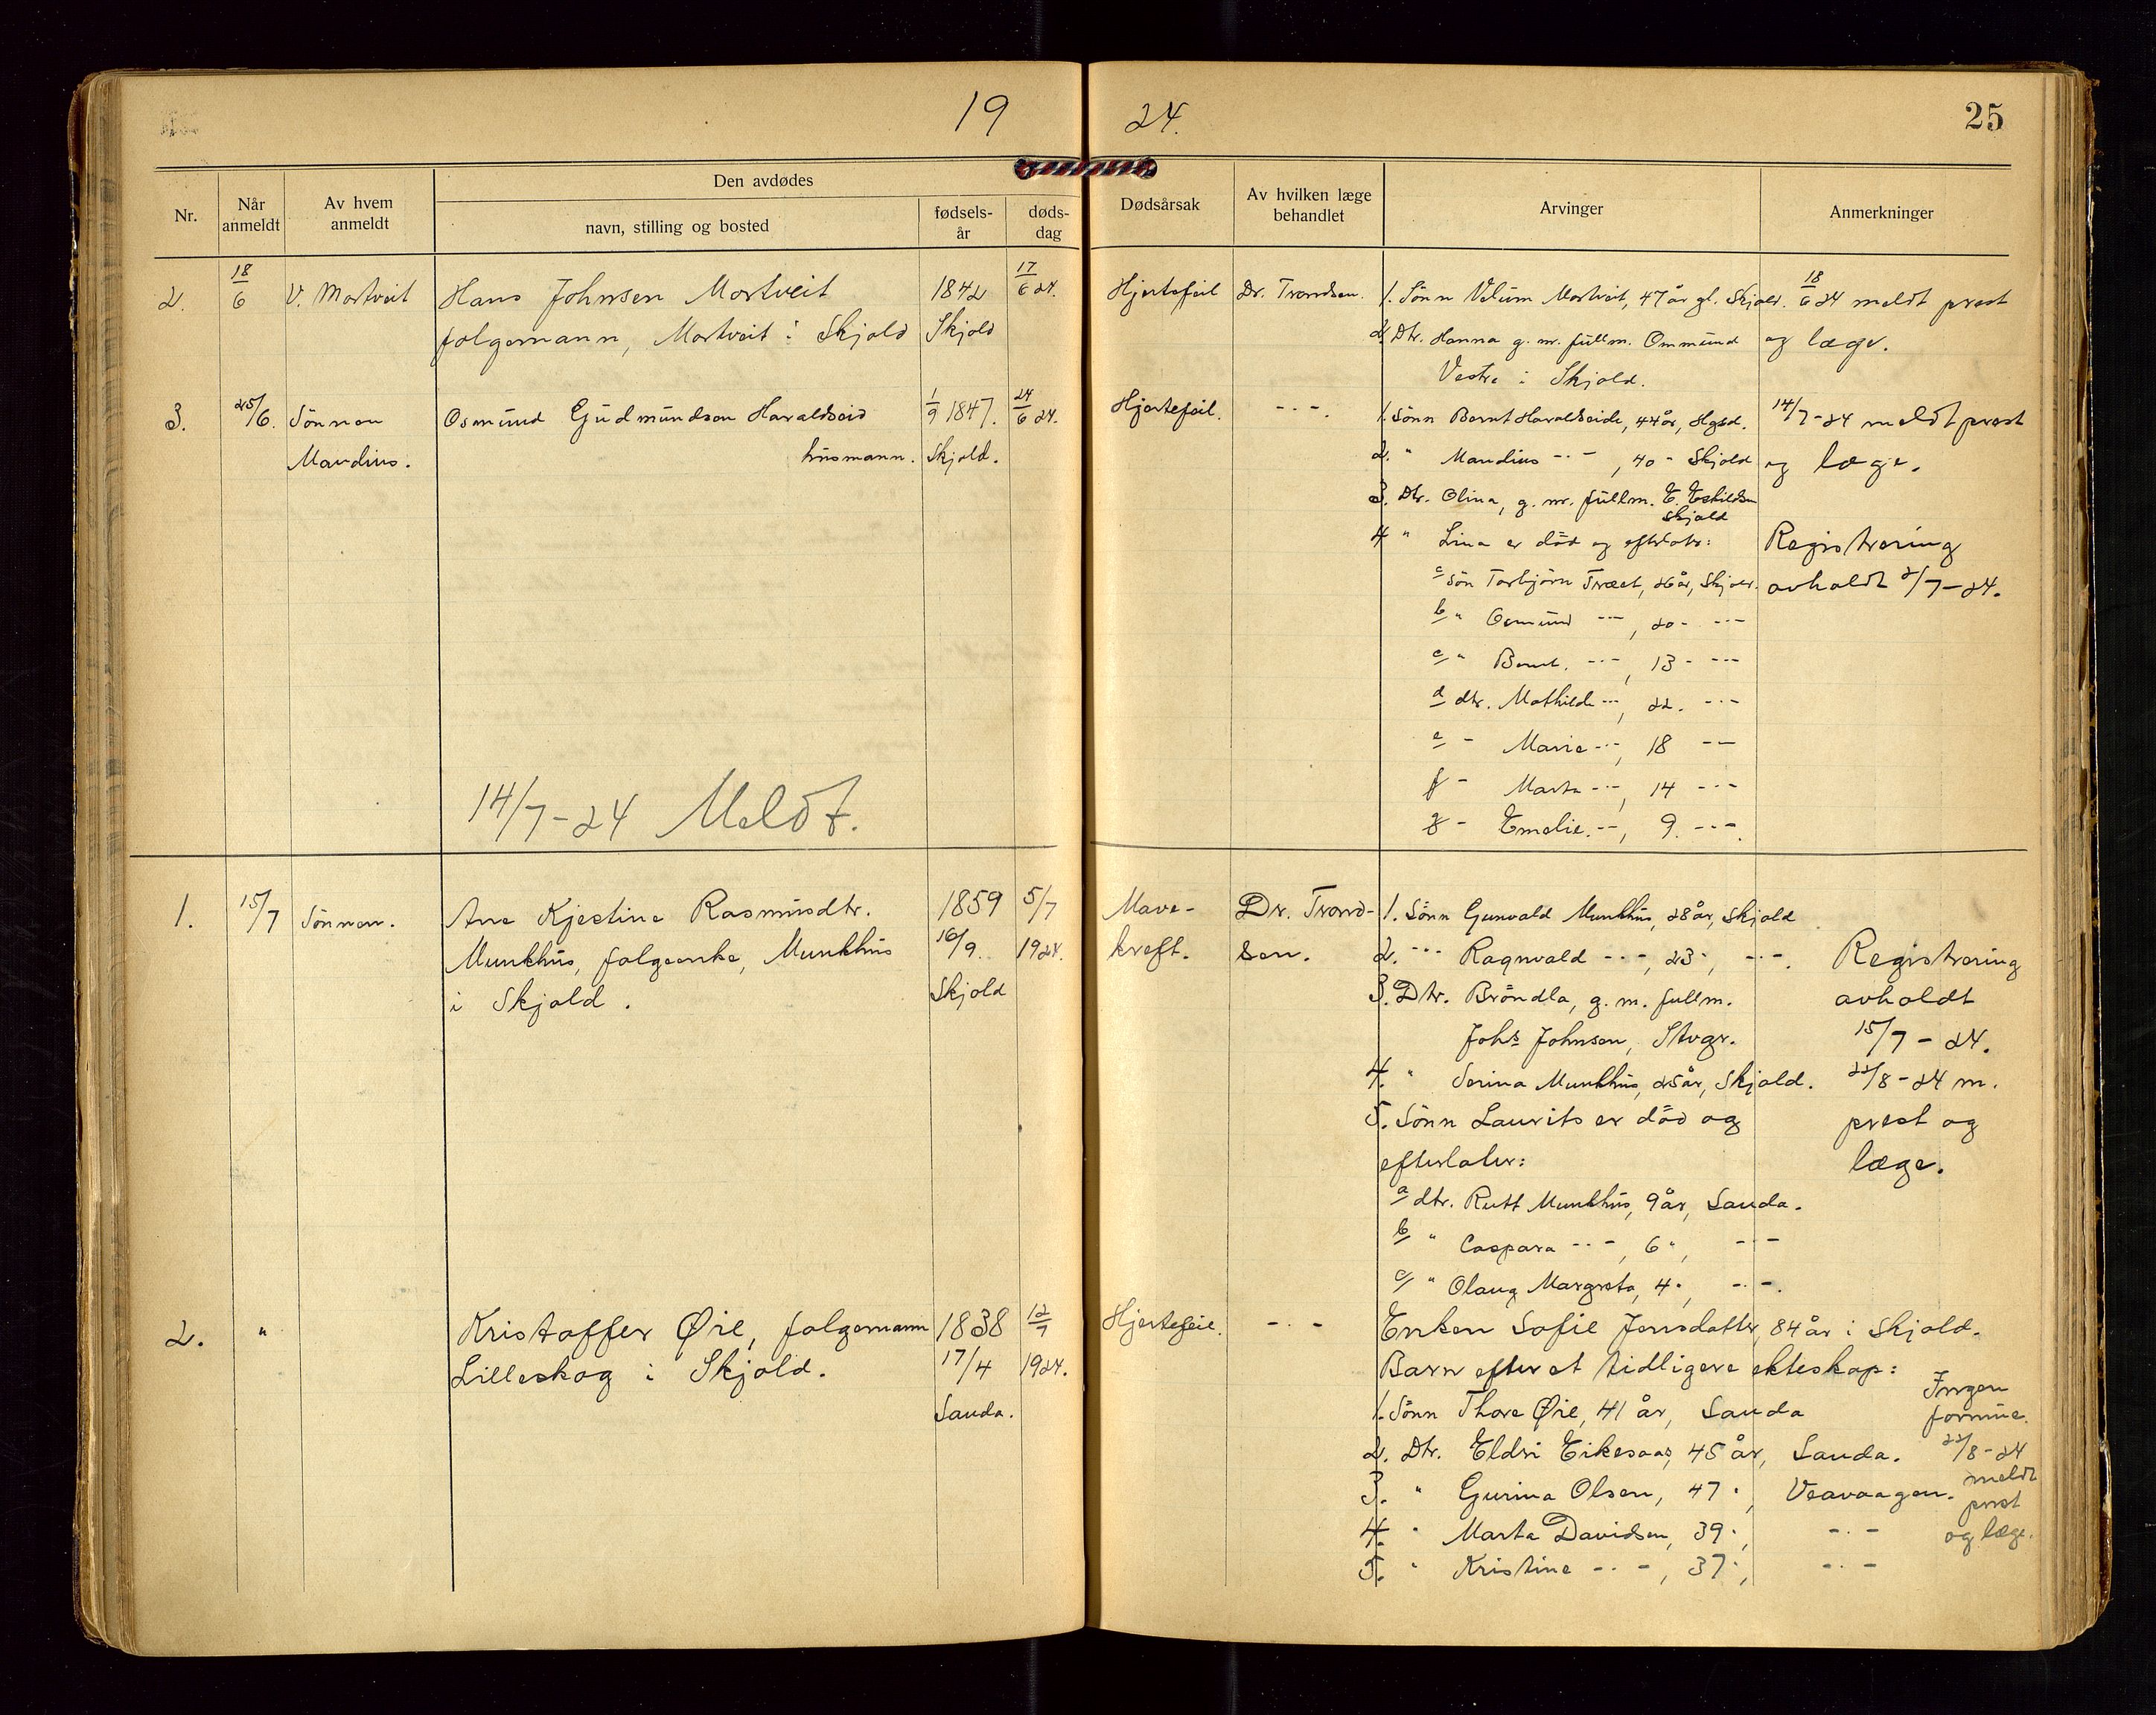 19 24.
25
Nr.
Når anmeldt
Av hvem anmeldt
Den avdødes
navn, stilling og bosted
fødsels-år
døds-dag
Dødsårsak
Av hvilken læge behandlet
Arvinger
Anmerkninger
2. 18/6 V. Mortveit Hans Johnsen Mortveit 1842 17/6 24. Hjertefeil Dr. Trondsen. 1. Sönn Velum Mortveit, 47 år gl. Skjold. 18/6 24 meldt prest
folgemann, Mortveit i Skjold Skjold 2. Dtr. Hanna g. m. fullm. Ommund og læge.
Vestre i Skjold.
3. 25/6. Sönnen Osmund Gudmundsen Haraldseid 1/9 1847. 24/6 24. Hjertefeil. -"-. 1. Sönn Bernt Haraldseide, 44 år, Hgsd. 14/7-24 meldt prest
Mandius. husmann. Skjold. 2. " Mandius -"-, 40 - Skjold og læge.
3. Dtr. Olina, g. m. fullm. E. Eskildsen
Skjold
4 " Lina er död og efterlater: Registrering
a Sön Torbjörn Træet, 26 år, Skjold. avholdt 2/7-24.
b " Osmund -"-, 20 - -"-
c " Bernt. -"-, 13 - -"-
d dtr. Mathilde -"-, 22. -"-
e - Marie -"-, 18 -"-
f - Marta -"-, 14 -"-
g - Emelie. -"-, 9. -"-.
14/7-24 Meldt.
1. 15/7 Sönnen. Ane Kjestine Rasmusdtr. 1859 5/7 Mave- Dr. Trond- 1. Sönn Gunvald Munkhus, 28 år, Skjold
Munkhus, folgeenke, Munkhus 16/9. 1924. kreft. sen. 2. -"- Ragnvald -"-, 23 ", -"-. Registrering
i Skjold. Skjold 3. Dtr. Bröndla, g. m. fullm. avholdt
Johs Johnsen, Stvgr. 15/7 - 24.
4. " Serina Munkhus, 25 år, Skjold. 22/8-24 m.
5. Sönn Laurits er död og prest og
efterlater: læge.
a dtr. Rutt Munkhus, 9 år, Sauda.
b " Caspara -"-, 6 ", -"-
c/ " Olaug Margreta, 4 ", -"-.
2. " Kristoffer Øie, folgemann 1838 12/7 Hjertefeil. -"- Enken Sofie Jensdatter, 84 år i Skjold.
Lilleskog i Skjold. 17/4 1924. Barn efter et tidligere ekteskap:
Sauda. 1. Sönn Thore Øie, 41 år, Sauda Ingen formue.
2. Dtr. Eldri Eikesaas, 45 år, Sauda. 22/8-24
3. " Gurina Olsen, 47 ", Veavaagen. meldt prest
4. " Marta Davidsen, 39 ", -"- og læge.
5. " Kristine -"-, 37 ", -"-